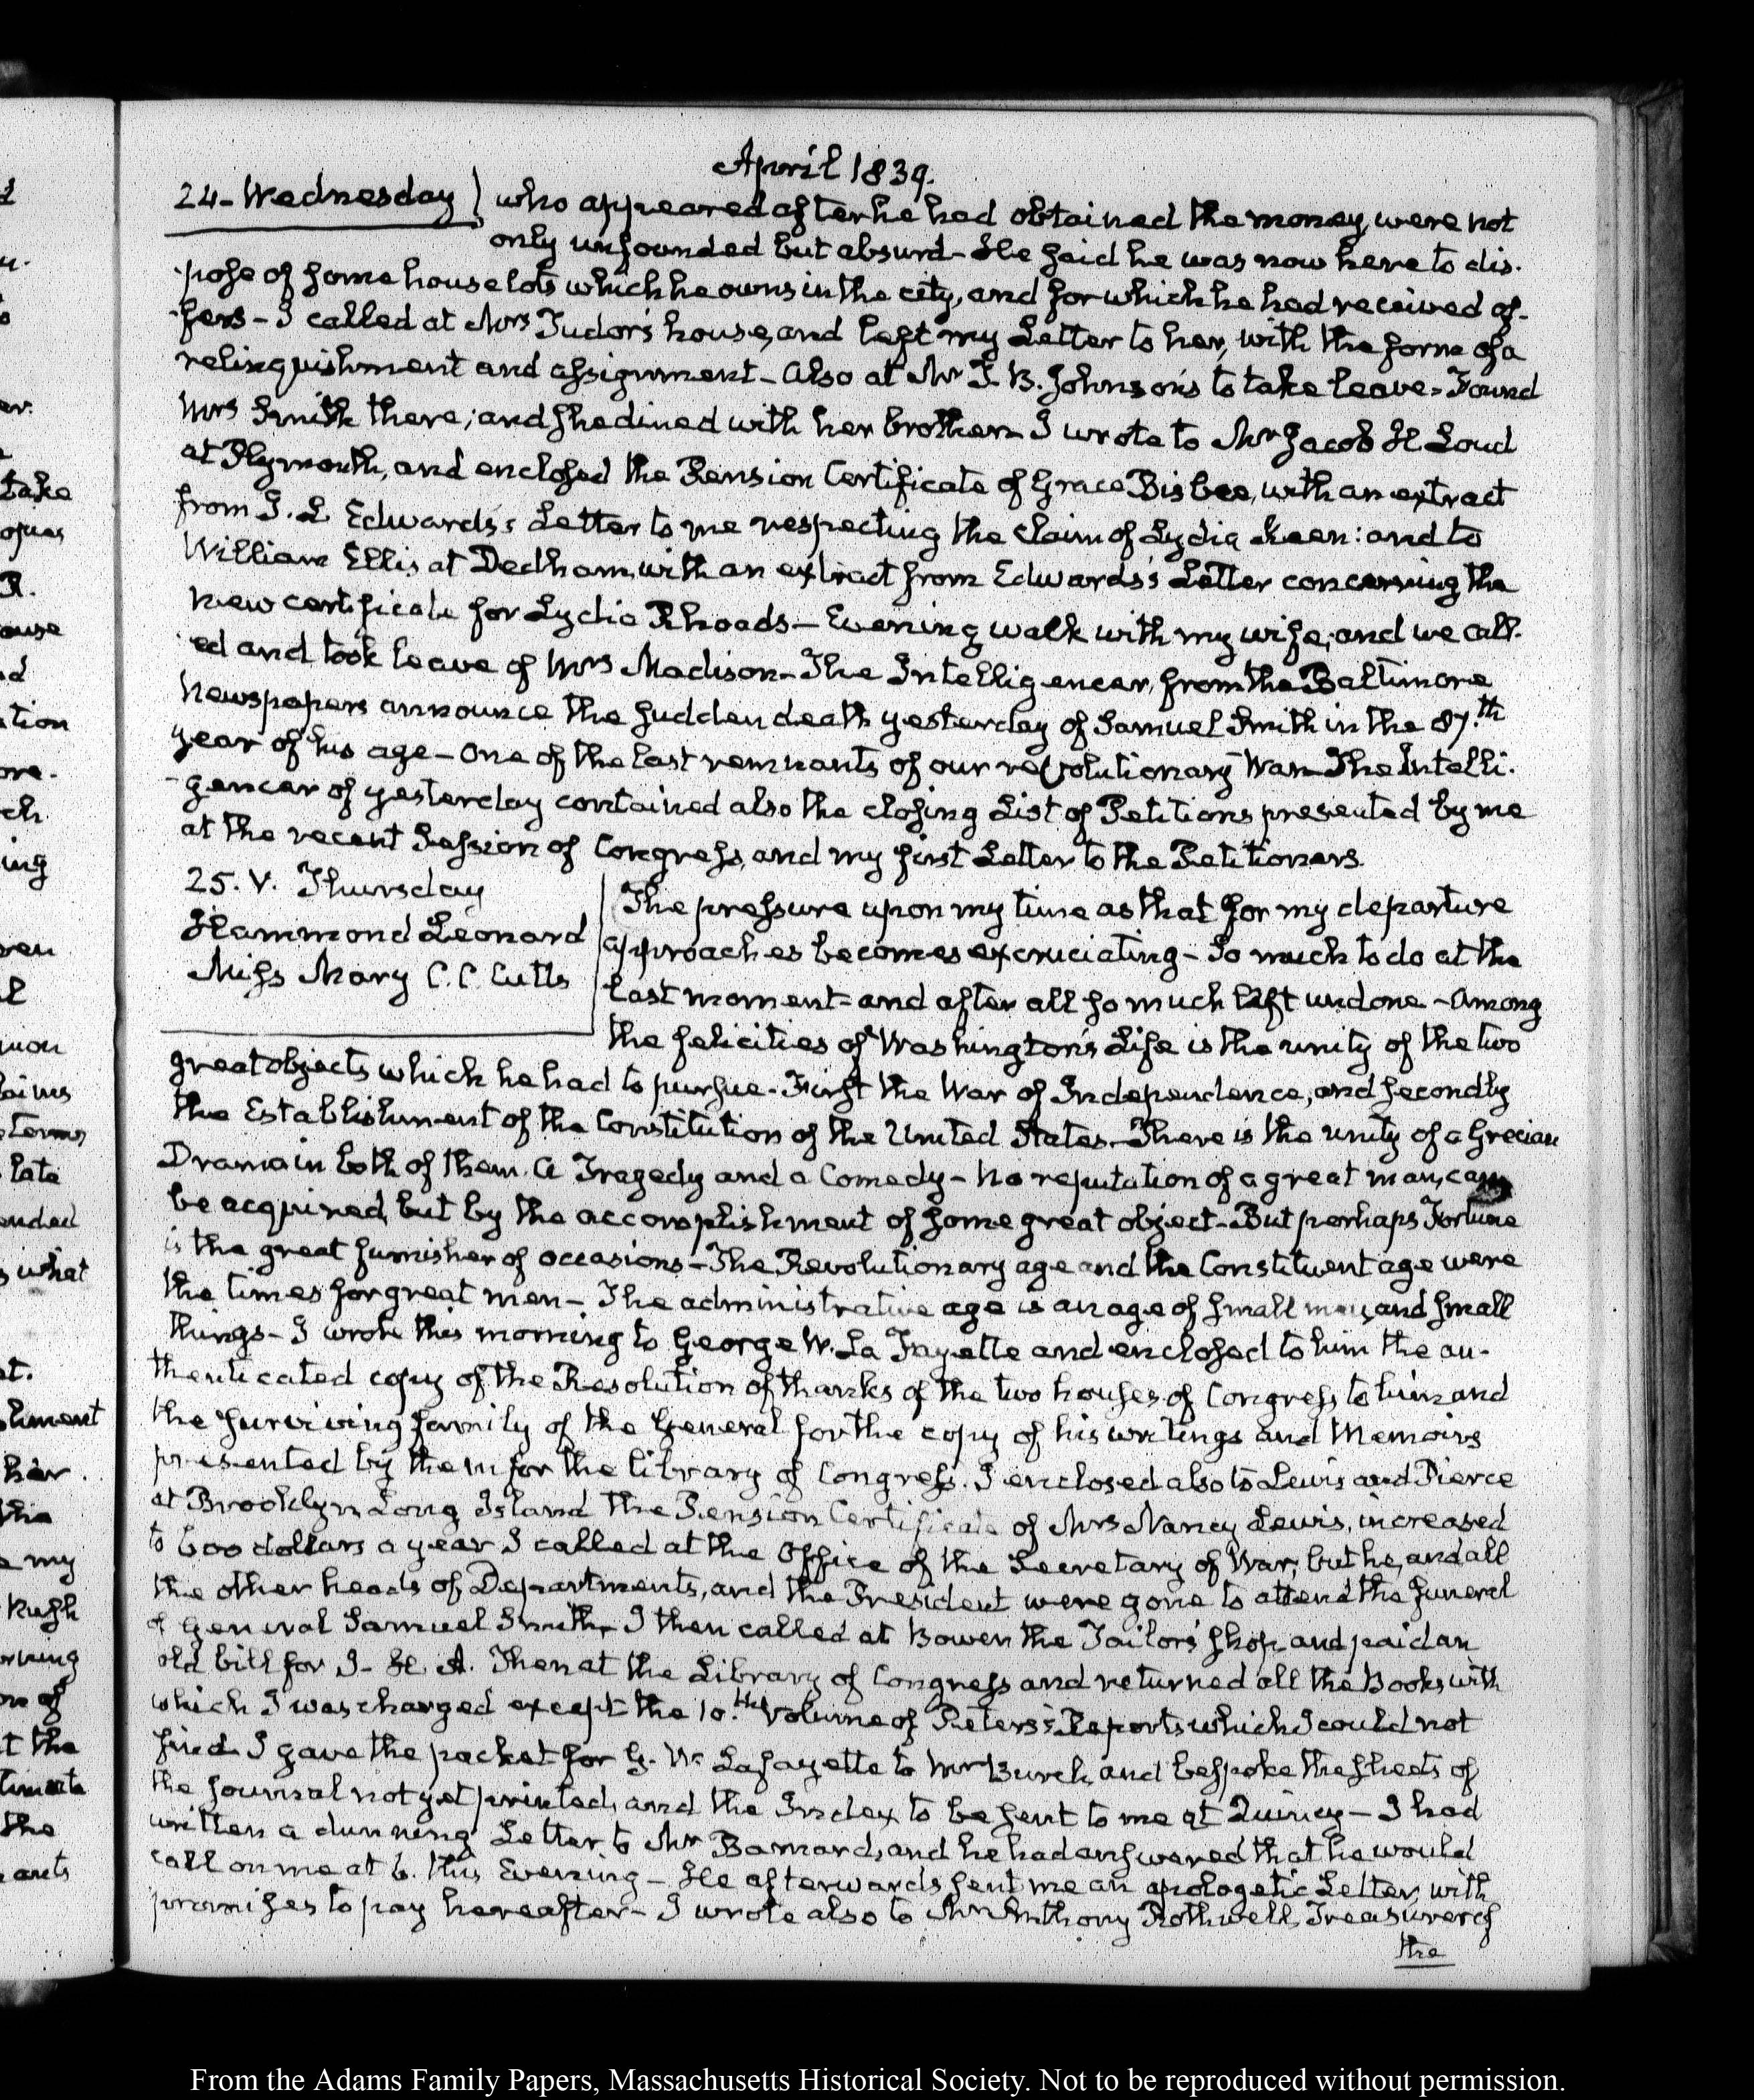 April 1839.
24- Wednesday) who appeared after he had obtained the money, were not
only unfounded but absurd- He said he was now here to dis-
pose of some house lots which he owns in the city, and for which he had received of-
fers- I called at Mrs Tudor's house, and left my Letter to her, with the form of a
relinquishment and assignment- Also at Mr T. B. Johnson's to take leave- Found
Mrs Smith there; and she dined with her brother- I wrote to Mr Jacob H Loud
at Plymouth, and enclosed the Pension Certificate of Grace Bisbee, with an extract
from J. L. Edwards's Letter to me respecting the Claim of Lydia Keen: and to
William Ellis at Dedham, with an extract from Edwards's Letter concerning the
new certificate for Lydia Rhoads- Evening walk with my wife; and we call-
ed and took leave of Mrs Madison- The Intelligencer, from the Baltimore
Newspapers announce the sudden death yesterday of Samuel Smith in the 87.th
year of his age- One of the last remnants of our revolutionary War- The Intelli-
gencer of yesterday contained also the closing List of Petitions presented by me
at the recent Session of Congress, and my first Letter to the Petitioners.
25. V. Thursday
Hammond Leonard
Miss Mary C. C. Cutts
The pressure upon my time as that for my departure
approaches becomes excruciating- So much to do at the
last moment- and after all so much left undone- Among
the felicities of Washington's Life is the unity of the two
great objects which he had to pursue- First the War of Independence, and secondly
the Establishment of the Constitution of the United States- There is the unity of a Grecian
Drama in both of them. A Tragedy and a Comedy- No reputation of a great man, can
be acquired, but by the accomplishment of some great object- But perhaps Fortune
is the great furnisher of occasions- The Revolutionary age and the Constituent age were
the times for great men- The administrative age is an age of small men, and small
things- I wrote this morning to George W. La Fayette and enclosed to him the au-
thenticated copy of the Resolution of thanks of the two houses of Congress to him and
the surviving family of the General for the copy of his writings and Memoirs
presented by them for the library of Congress. I enclosed also to Lewis and Pierce
at Brooklyn Long Island the Pension Certificate of Mrs Nancy Lewis, increased
to 600 dollars a year I called at the Office of the Secretary of War; but he, and all
the other heads of Departments, and the President were gone to attend the funeral
of General Samuel Smith- I then called at Bowen the Tailor's shop and paid an
old bill for I. H. A. Then at the Library of Congress and returned all the Books with
which I was charged except the 10.th volume of Peters's Reports which I could not
find I gave the packet for G. W. Lafayette to Mr Burch, and bespoke the sheets of
the Journal not yet printed, and the Index to be sent to me at Quincy- I had
written a dunning Letter to Mr Barnard, and he had answered that he would
call on me at 6. this Evening- He afterwards sent me an apologetic Letter, with
promises to pay hereafter- I wrote also to Mr Anthony Rothwell, Treasurer of
the
From the Adams Family Papers, Massachusetts Historical Society. Not to be reproduced without permission.